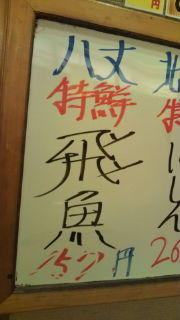 八丈
特鮮
飛魚
157円
特
にしん
26